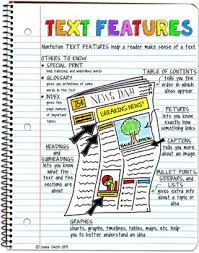 TEXT FEATURES
Nonfiction TEXT FEATURES help a reader make sense of a text
OTHERS TO KNOW
★ SPECIAL PRINT
bold, italicized, and underlined words
★ GLOSSARY
gives you definitions of some words
★ INDEX
gives the page number of important topics
TABLE OF CONTENTS
tells you the order in which ideas appear
NEWS DAY
BREAKING NEWS!
PICTURES
lets you know exactly how something looks
CAPTIONS
tells you more about an image.
HEADINGS and SUBHEADINGS
lets you know what the text and the sections are about
BULLET POINTS, SIDEBARS, and LISTS
gives extra info about a topic or idea
GRAPHICS
charts, graphs, timelines, tables, maps, etc. help you to better understand an idea